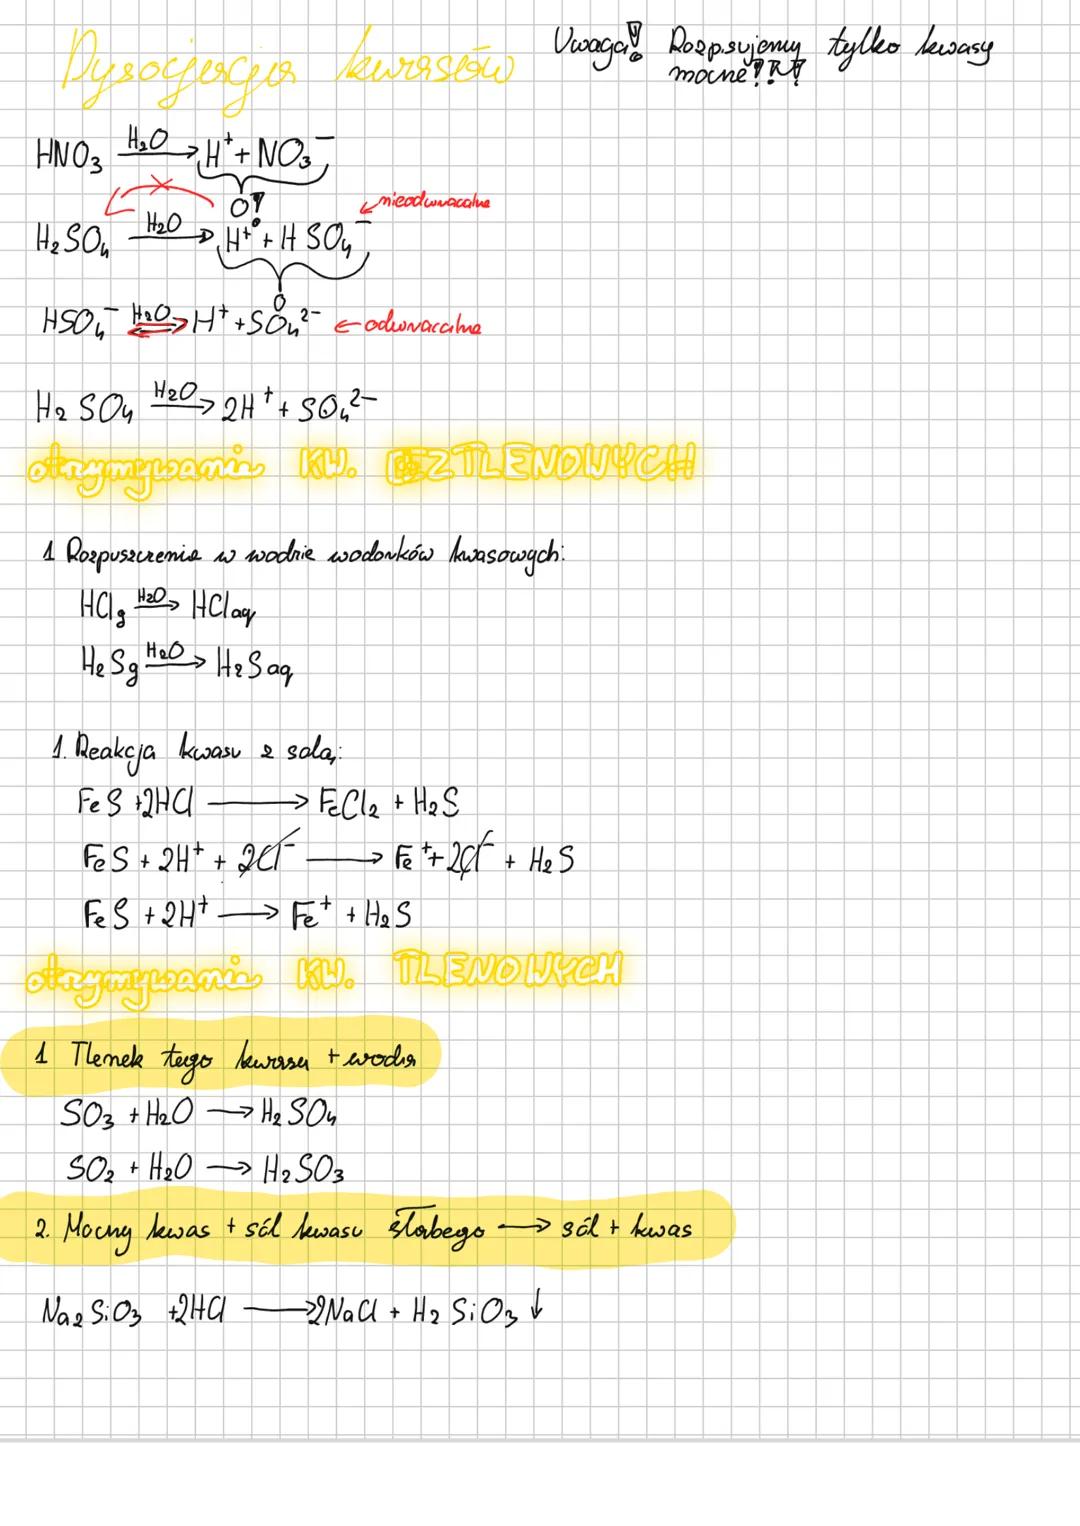 Dysocjacja kwasów
Uwaga! Rozpisujemy tylko kwasy
mocne!!!
HNO₃ H₂O→ H⁺ + NO₃⁻
0!
nieodwracalne
H₂SO₄ H₂O→ H⁺ + HSO₄⁻
0
HSO₄⁻ H₂O⇌ H⁺ + SO₄²⁻ ← odwracalne
H₂SO₄ H₂O→ 2H⁺ + SO₄²⁻
otrzymywanie KW. BEZTLENOWYCH
1 Rozpuszczenie w wodzie wodorków kwasowych:
HCl g H₂O→ HCl aq
H₂S g H₂O→ H₂S aq
1. Reakcja kwasu z solą:
FeS + 2HCl → FeCl₂ + H₂S
FeS + 2H⁺ + 2Cl⁻ → Fe⁺ + 2Cl⁻ + H₂S
FeS + 2H⁺ → Fe⁺ + H₂S
otrzymywanie KW. TLENOWYCH
1 Tlenek tego kwasu + woda
SO₃ + H₂O → H₂SO₄
SO₂ + H₂O → H₂SO₃
2. Mocny kwas + sól kwasu słabego → sól + kwas
Na₂SiO₃ + 2HCl → 2NaCl + H₂SiO₃ ↓